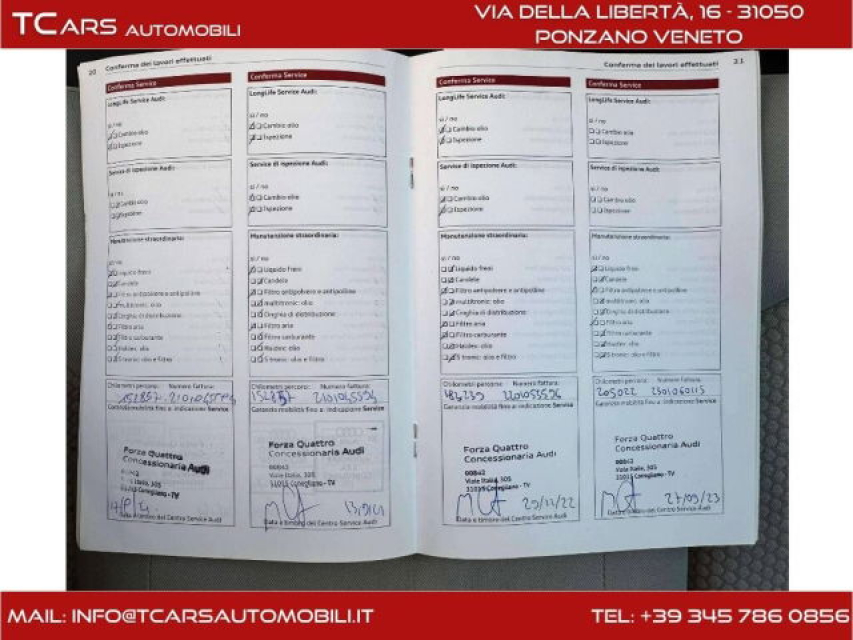 TCars automobili
VIA DELLA LIBERTÀ, 16 - 31050
PONZANO VENETO
20 Conferma dei lavori effettuati
Conferma Service
LongLife Service Audi:
si / no
Cambio olio
Ispezione
Service di ispezione Audi:
si / no
Cambio olio
Ispezione
Manutenzione straordinaria:
si / no
Liquido freni
Candele
Filtro antipolvere e antipolline
multitronic: olio
Cinghia di distribuzione
Filtro aria
Filtro carburante
Haldex: olio
S tronic: olio e filtro
Chilometri percorsi: Numero fattura:
152857
Garanzia mobilità fino a: indicazione Service
Forza Quattro
Concessionaria Audi
Viale Italia, 305
Conegliano - TV
Data e timbro del Centro Service Audi
Conferma Service
LongLife Service Audi:
si / no
Cambio olio
Ispezione
Service di ispezione Audi:
si / no
Cambio olio
Ispezione
Manutenzione straordinaria:
si / no
Liquido freni
Candele
Filtro antipolvere e antipolline
multitronic: olio
Cinghia di distribuzione
Filtro aria
Filtro carburante
Haldex: olio
S tronic: olio e filtro
Chilometri percorsi: Numero fattura:
152857
Garanzia mobilità fino a: indicazione Service
Forza Quattro
Concessionaria Audi
00842
Viale Italia, 305
31015 Conegliano - TV
Data e timbro del Centro Service Audi
Conferma dei lavori effettuati 21
Conferma Service
LongLife Service Audi:
si / no
Cambio olio
Ispezione
Service di ispezione Audi:
si / no
Cambio olio
Ispezione
Manutenzione straordinaria:
si / no
Liquido freni
Candele
Filtro antipolvere e antipolline
multitronic: olio
Cinghia di distribuzione
Filtro aria
Filtro carburante
Haldex: olio
S tronic: olio e filtro
Chilometri percorsi: Numero fattura:
Garanzia mobilità fino a: indicazione Service
Forza Quattro
Concessionaria Audi
00842
Viale Italia, 305
31015 Conegliano - TV
29/11/22
Data e timbro del Centro Service Audi
Conferma Service
LongLife Service Audi:
si / no
Cambio olio
Ispezione
Service di ispezione Audi:
si / no
Cambio olio
Ispezione
Manutenzione straordinaria:
si / no
Liquido freni
Candele
Filtro antipolvere e antipolline
multitronic: olio
Cinghia di distribuzione
Filtro aria
Filtro carburante
Haldex: olio
S tronic: olio e filtro
Chilometri percorsi: Numero fattura:
205022 2301060115
Garanzia mobilità fino a: indicazione Service
Forza Quattro
Concessionaria Audi
00842
Viale Italia, 305
31015 Conegliano - TV
27/09/23
Data e timbro del Centro Service Audi
MAIL: INFO@TCARSAUTOMOBILI.IT
TEL: +39 345 786 0856